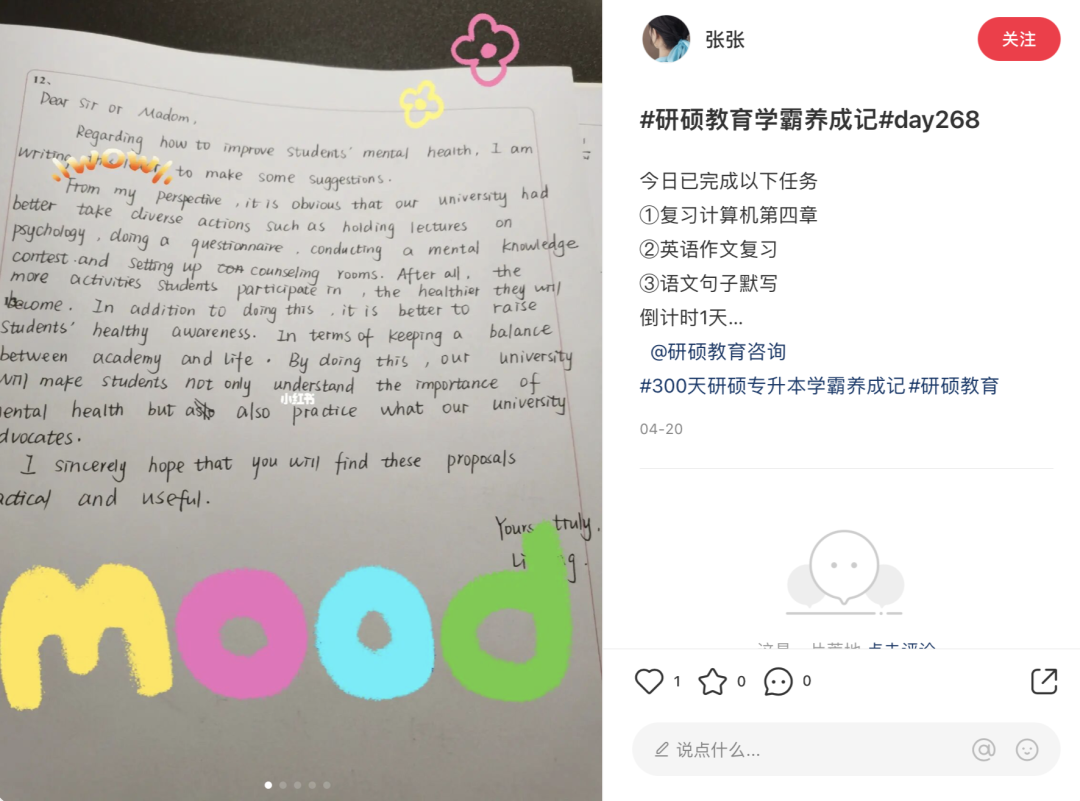 12、
Dear Sir or Madom,
Regarding how to improve students' mental health, I am
writing
WOW!
to make some suggestions.
From my perspective, it is obvious that our university had
better take diverse actions such as holding lectures on
psychology, doing a questionnaire, conducting a mental knowledge
contest and setting up counseling rooms. After all, the
more activities students participate in, the healthier they will
become. In addition to doing this, it is better to raise
students' healthy awareness. In terms of keeping a balance
between academy and life. By doing this, our university
will make students not only understand the importance of
mental health but also practice what our university
小红书
dvocates.
I sincerely hope that you will find these proposals
actical and useful.
Yours truly,
Li
mood
张张
关注
#研硕教育学霸养成记#day268
今日已完成以下任务
①复习计算机第四章
②英语作文复习
③语文句子默写
倒计时1天...
@研硕教育咨询
#300天研硕专升本学霸养成记 #研硕教育
04-20
点击评论
1
0
0
说点什么...